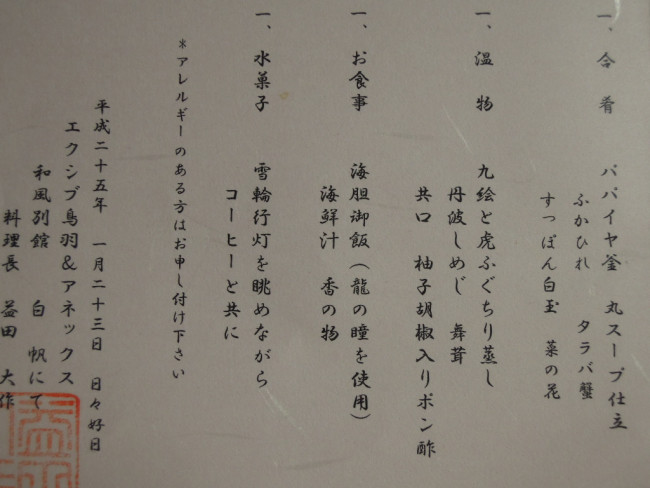 一、合肴　パパイヤ釜　丸スープ仕立
ふかひれ　タラバ蟹
すっぽん白玉　菜の花
一、温物　九絵と虎ふぐちり蒸し
丹波しめじ　舞茸
共口　柚子胡椒入りポン酢
一、お食事　海胆御飯（龍の瞳を使用）
海鮮汁　香の物
一、水菓子　雪輪行灯を眺めながら
コーヒーと共に
＊アレルギーのある方はお申し付け下さい
平成二十五年　一月二十三日　日々好日
エクシブ鳥羽＆アネックス
和風別館　白帆にて
料理長　益田　大作